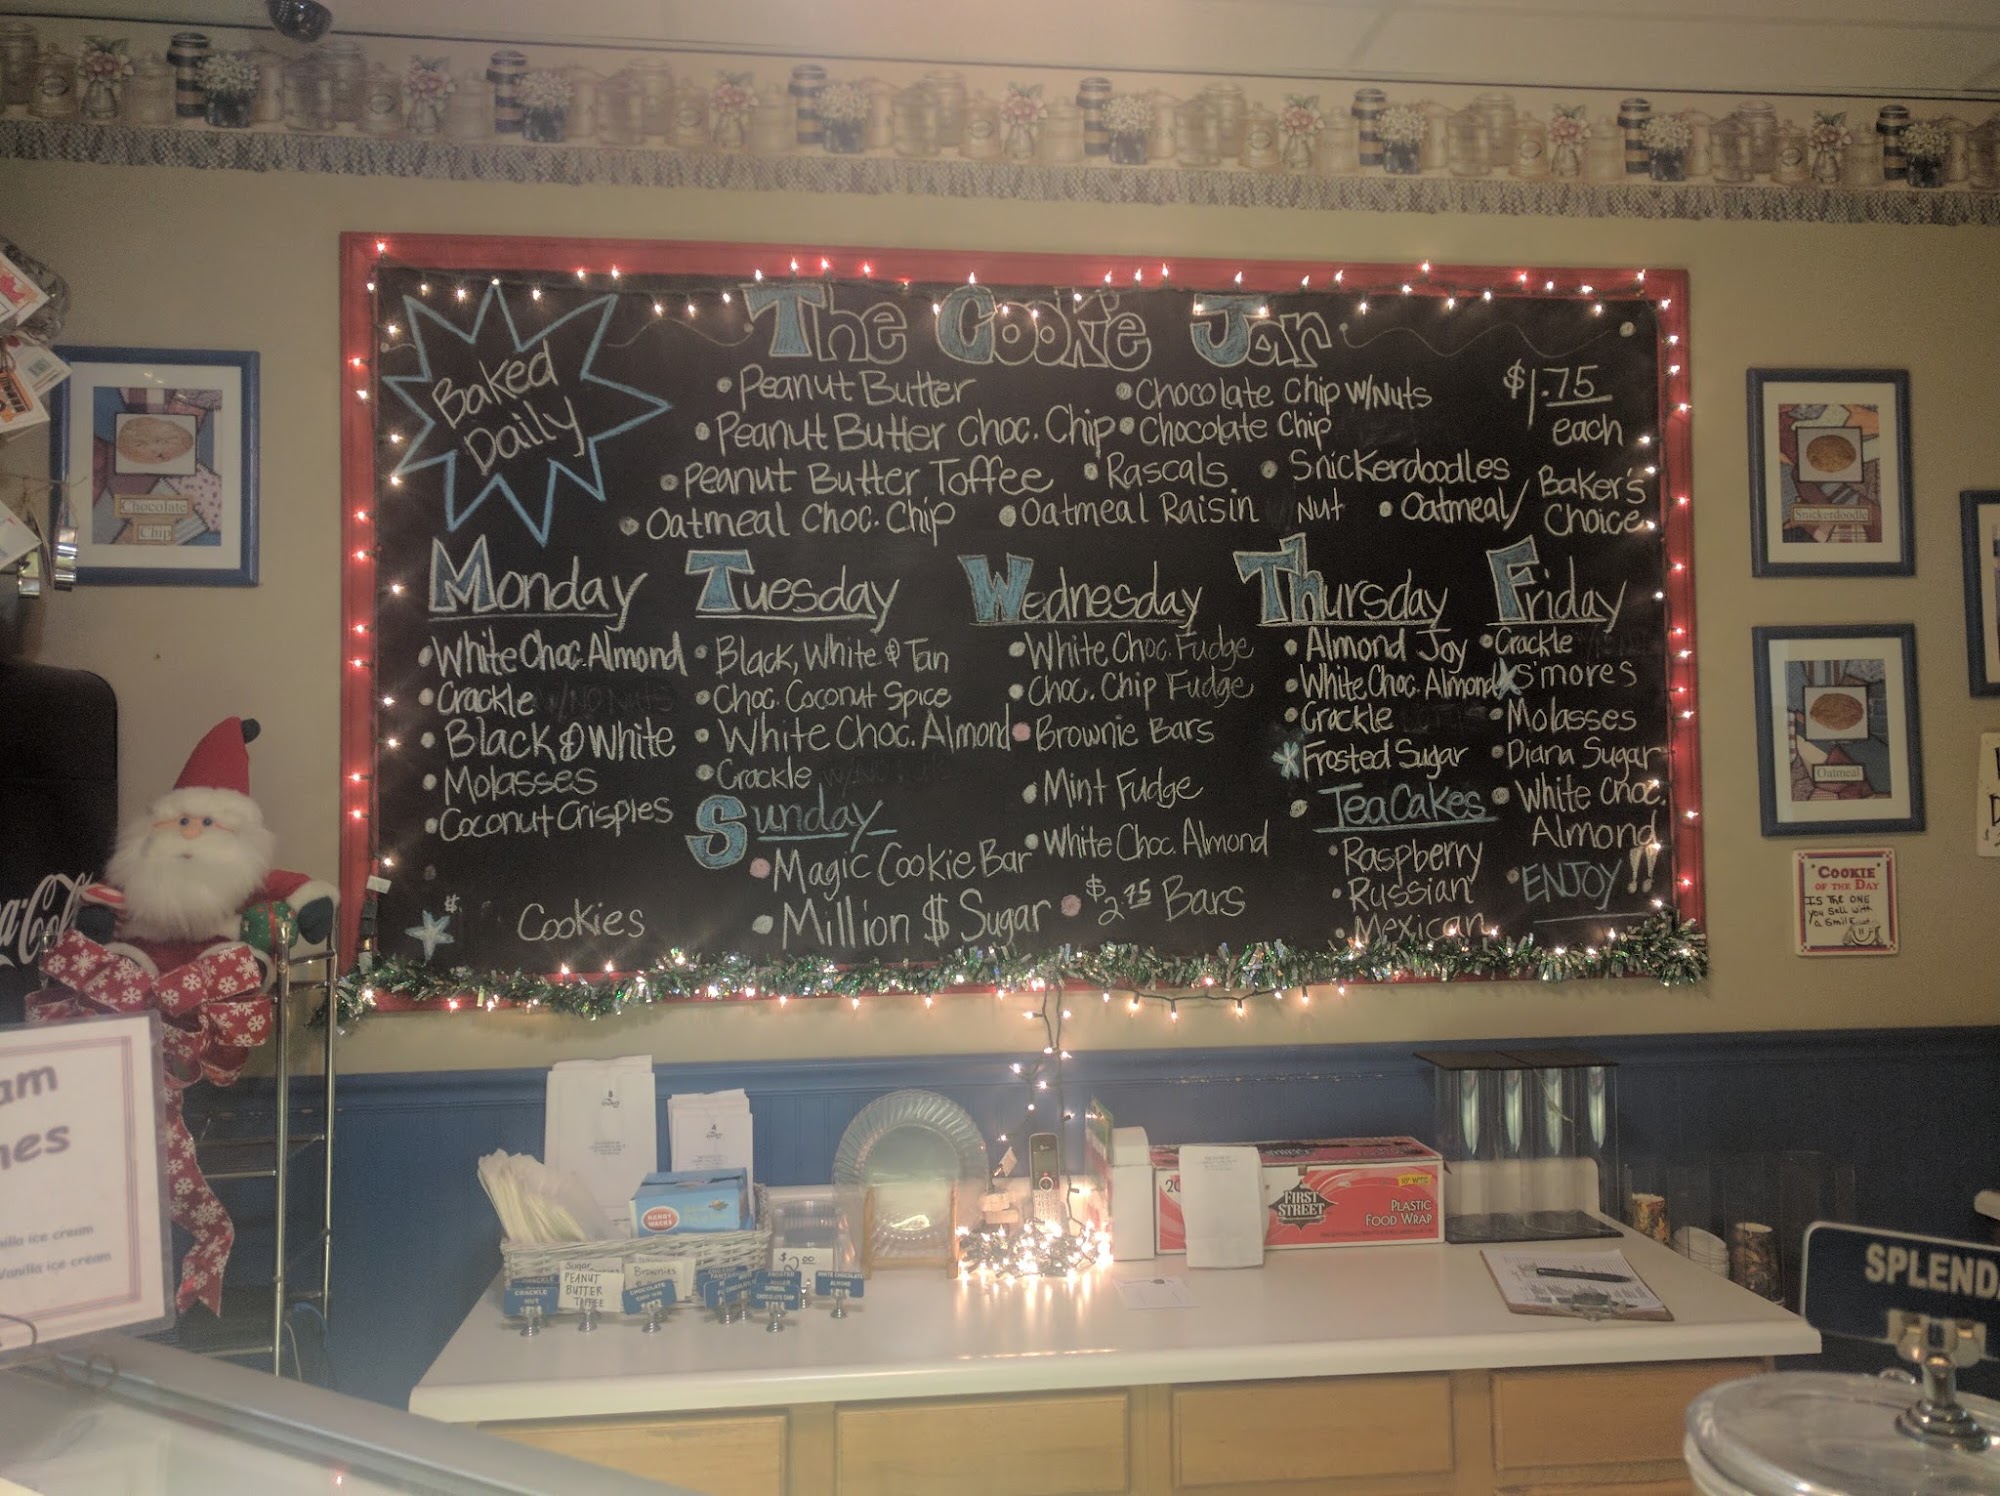 The Cookie Jar
Baked
Daily
• Peanut Butter
• Chocolate Chip w/Nuts
$1.75
each
• Peanut Butter Choc. Chip
• Chocolate Chip
• Peanut Butter Toffee
• Rascals
• Snickerdoodles
• Oatmeal Choc. Chip
• Oatmeal Raisin
Nut
• Oatmeal/
Baker's
Choice
Monday
• White Choc. Almond
• Crackle
• Black & White
• Molasses
• Coconut Crispies
$
Cookies
Tuesday
• Black, White & Tan
• Choc. Coconut Spice
• White Choc. Almond
• Crackle
Sunday
• Magic Cookie Bar
• Million $ Sugar
Wednesday
• White Choc. Fudge
• Choc. Chip Fudge
• Brownie Bars
• Mint Fudge
• White Choc. Almond
• $2.75 Bars
Thursday
• Almond Joy
• White Choc. Almond
• Crackle
Frosted Sugar
• TeaCakes
• Raspberry
• Russian
• Mexican
Friday
• Crackle
S'mores
• Molasses
• Diana Sugar
• White Choc.
Almond
• ENJOY!!
Chocolate
Chip
Snickerdoodle
Oatmeal
COOKIE
OF THE DAY
IS THE ONE
you sell with
a smile
am
nes
nilla ice cream
Vanilla ice cream
8
4
HANDY
WACKS
$2.00
Sugar
Brownies
PEANUT
BUTTER
TOFFEE
CRACKLE
NUT
CHOCOLATE
WHITE CHOCOLATE
ALMOND
20
FIRST
STREET
PLASTIC
FOOD WRAP
SPLENDA